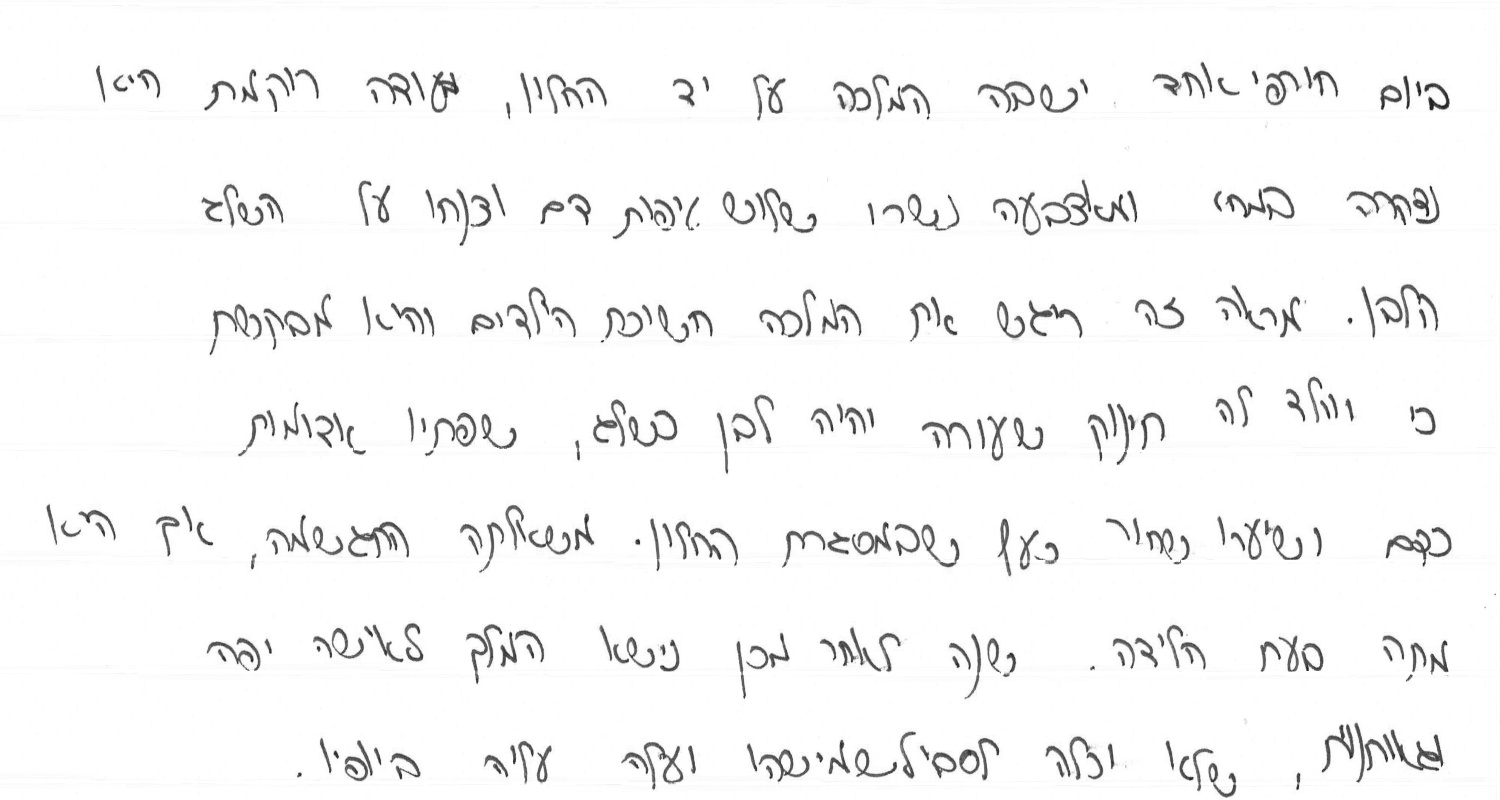 ביום חורפי אחד ישבה המלכה על יד החלון, עודה רוקמת היא
נדקרה במחט ומאצבעה נשרו שלוש טיפות דם וצנחו על השלג
הלבן. מראה זה ריגש את המלכה חשוכת הילדים והיא מבקשת
כי יוולד לה תינוק שעורה יהיה לבן כשלג, שפתיו אדומות
כדם ושיערו שחור כעץ שבמסגרת החלון. משאלתה התגשמה, אך היא
מתה בעת הלידה. שנה לאחר מכן נישא המלך לאישה יפה
וגאוותנית, שלא יכלה לסבול שמישהו יעלה עליה ביופיו.